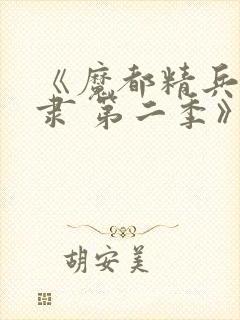 《魔都精兵
隶 第二季》
胡安美